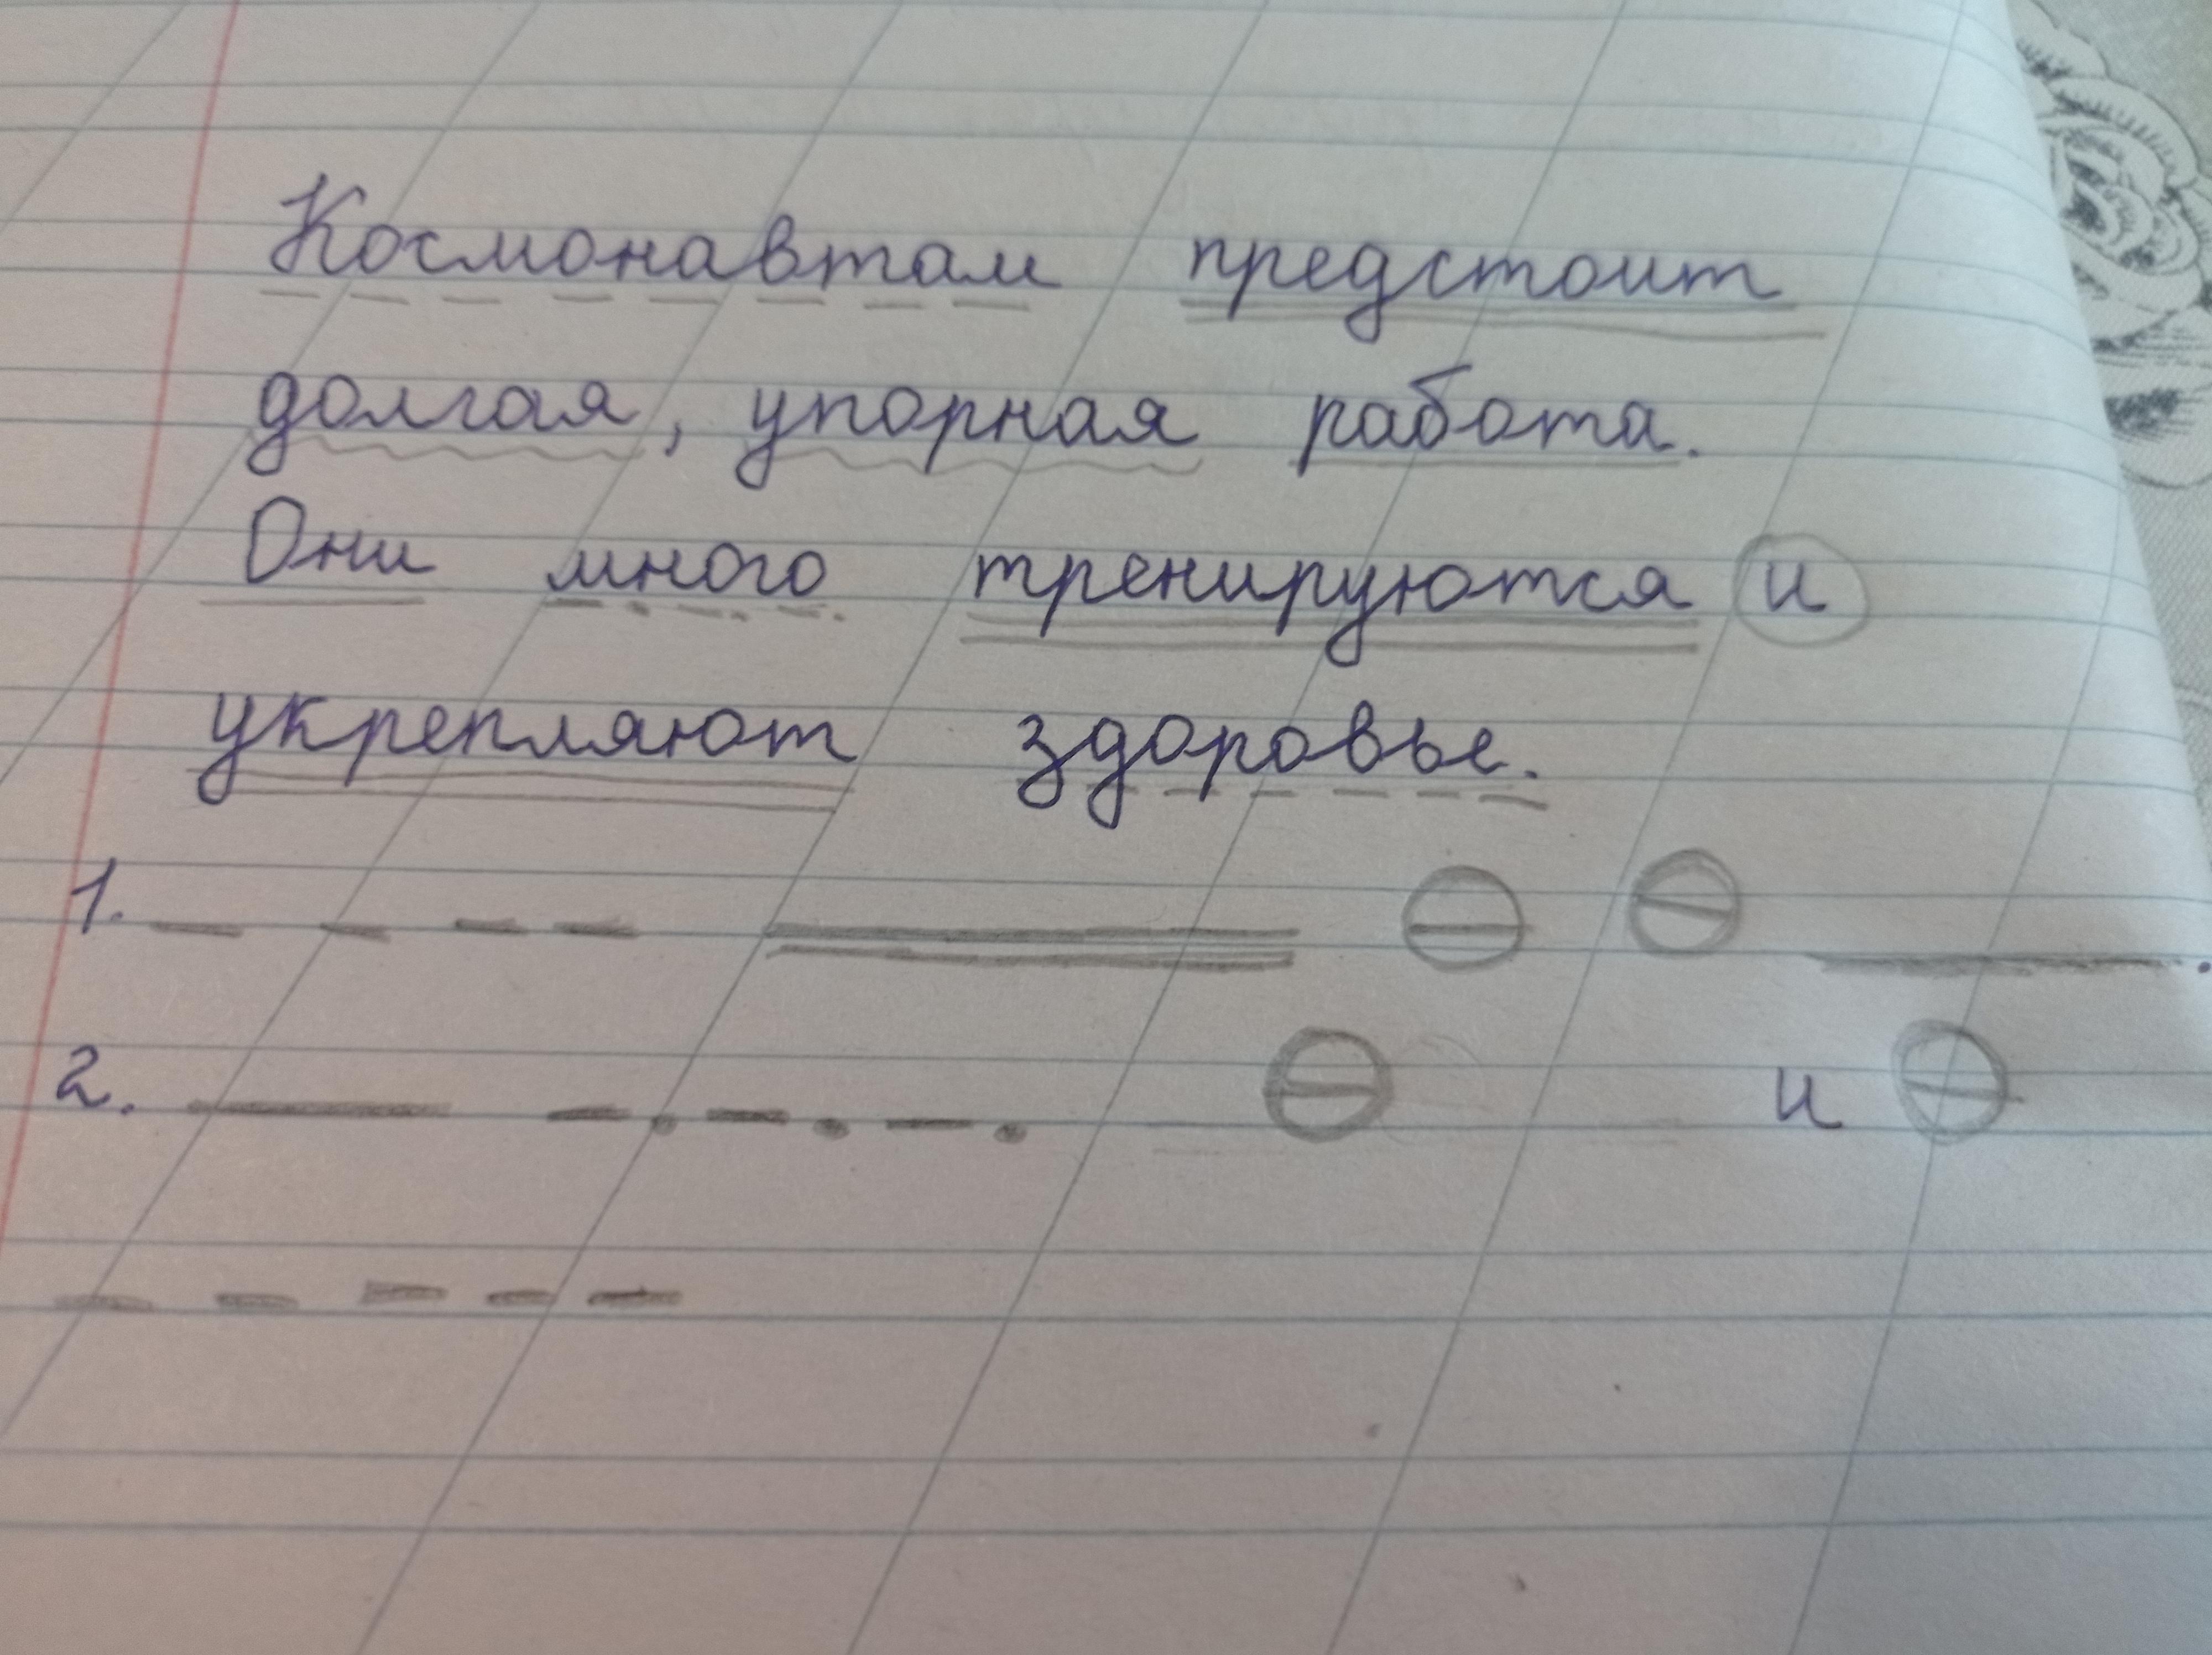 Космонавтам предстоит
долгая, упорная работа.
Они много тренируются и
укрепляют здоровье.
1. .
2. и